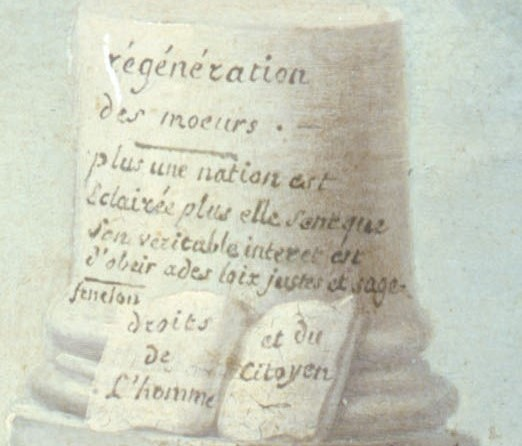 régénération
des moeurs . —
plus une nation est
Eclairée plus elle sent que
son veritable interet est
d'obeir a des loix justes et sage.
fenelon
droits
de
L'homme
et du
Citoyen